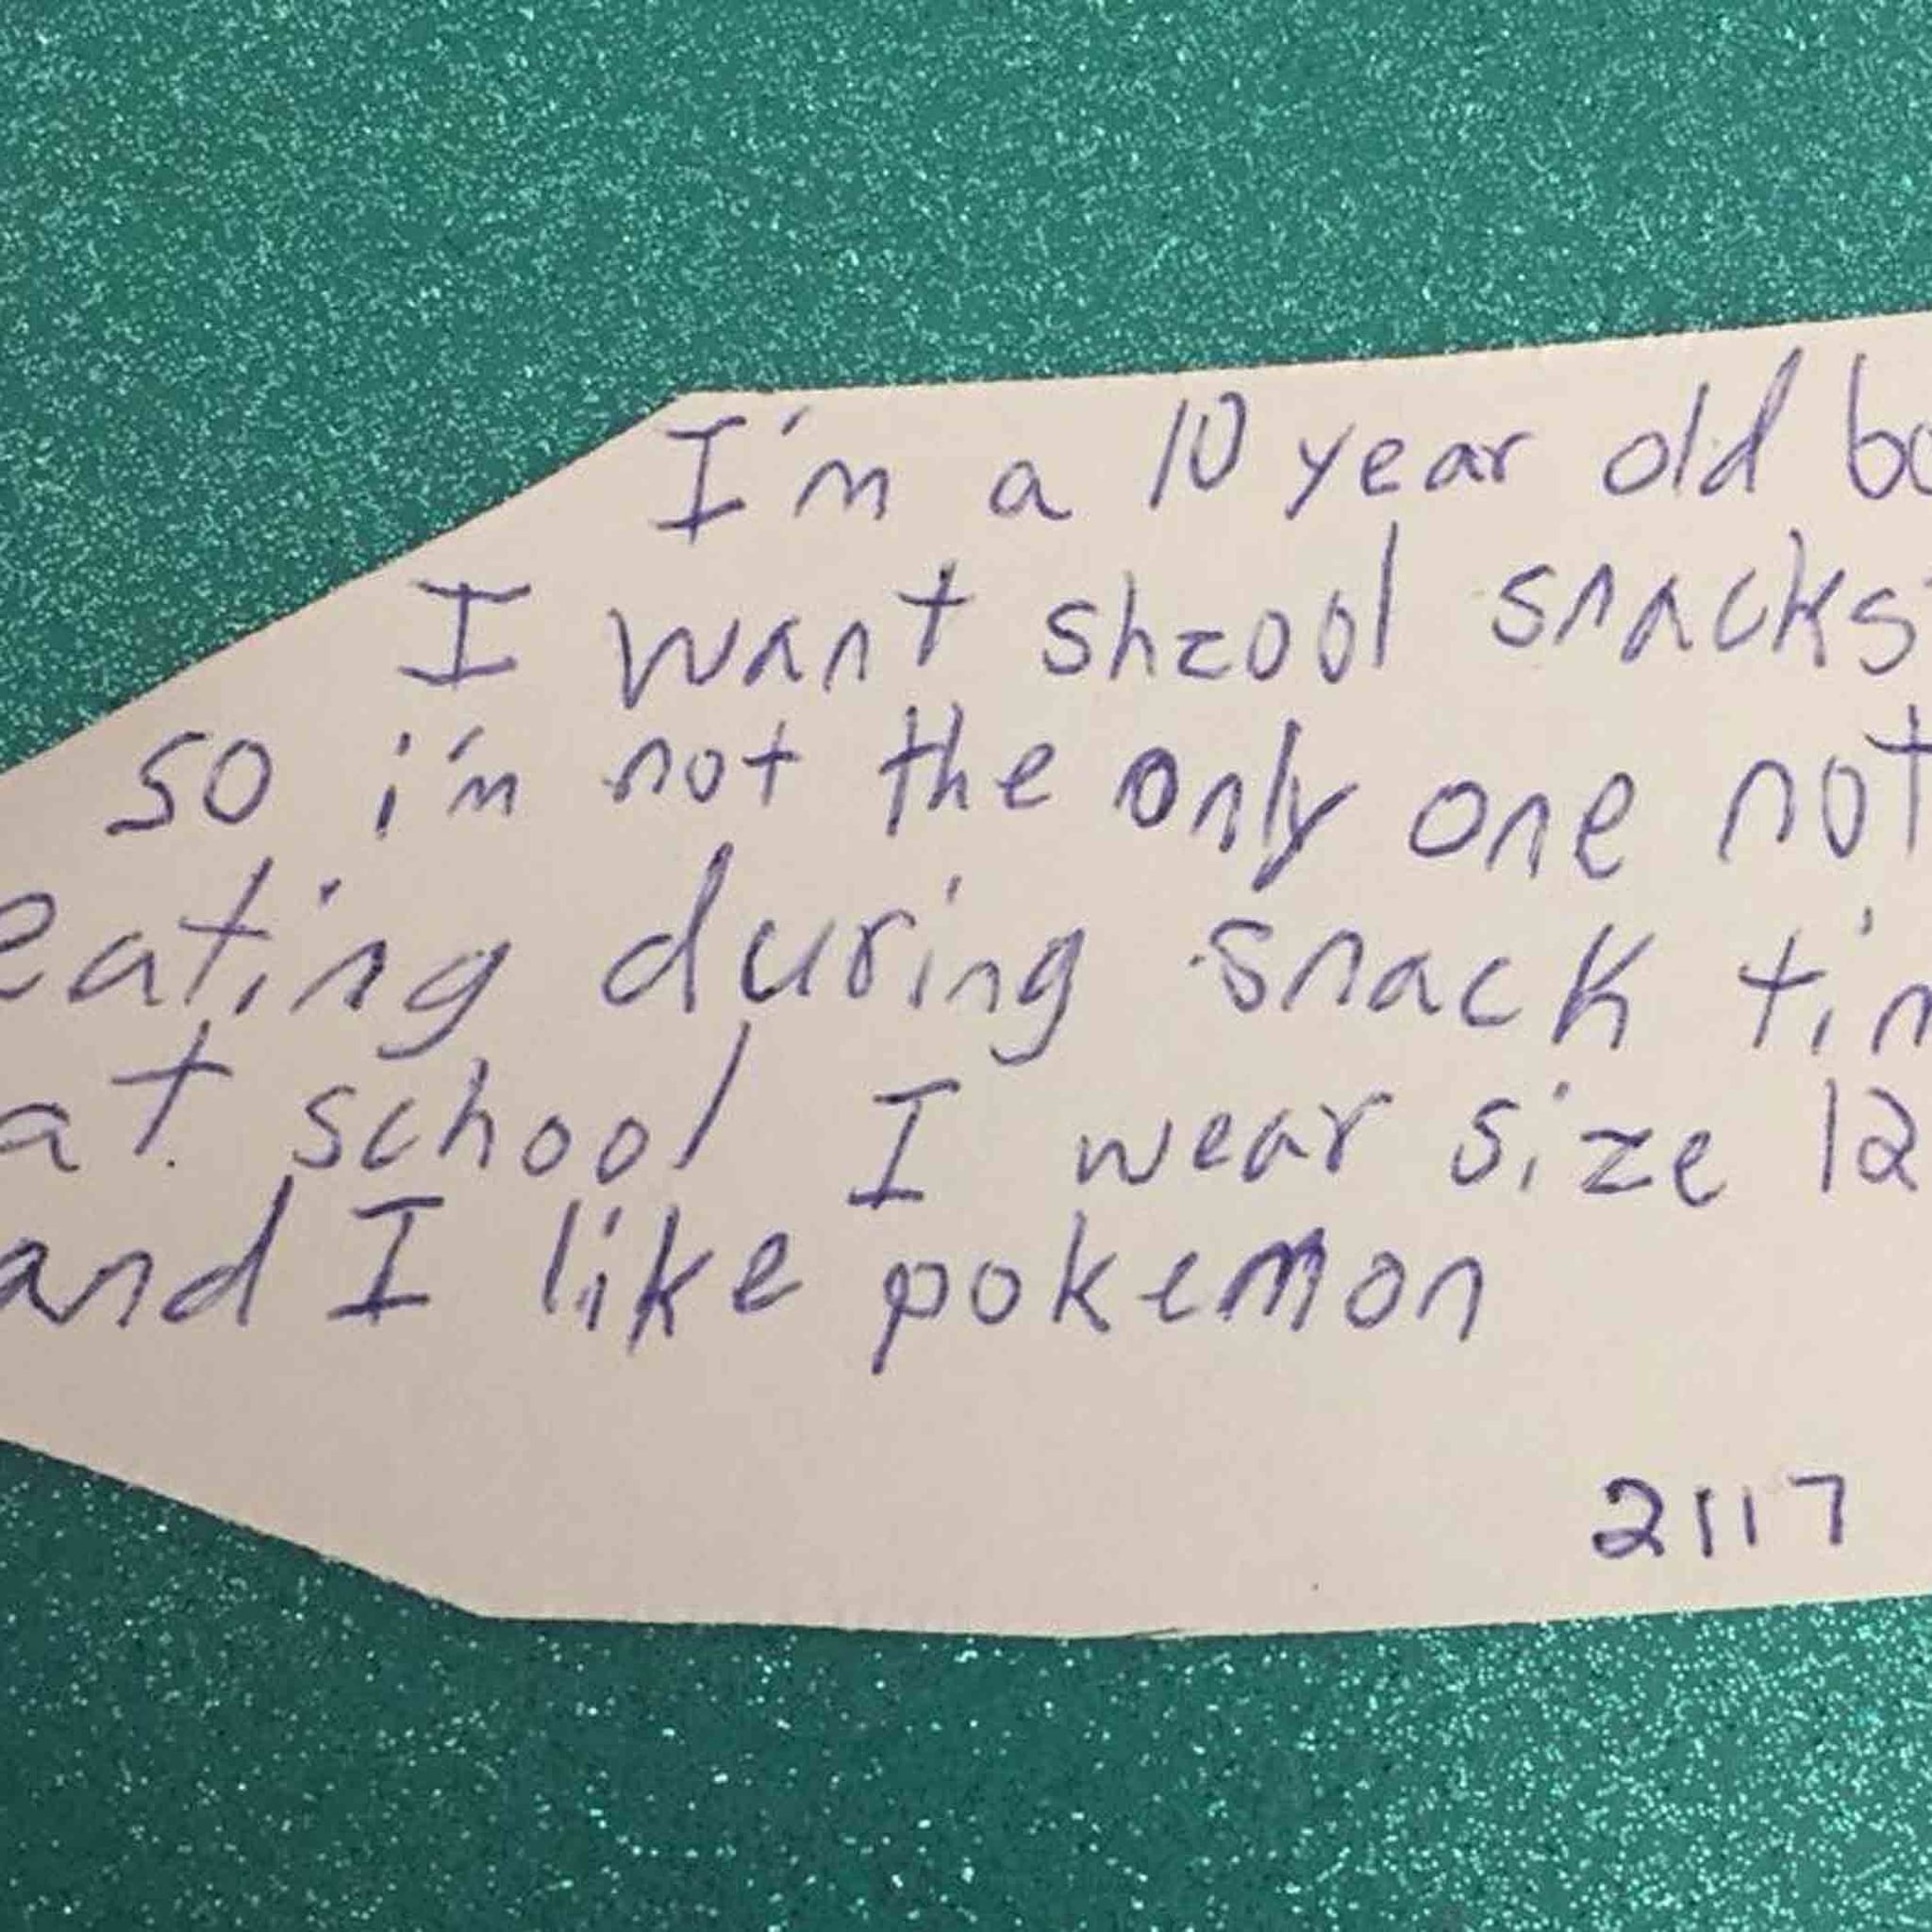 I'm a 10 year old bo
I want shcool snacks
so i'm not the only one not
eating during snack tim
at school I wear size 12
and I like pokemon
2117